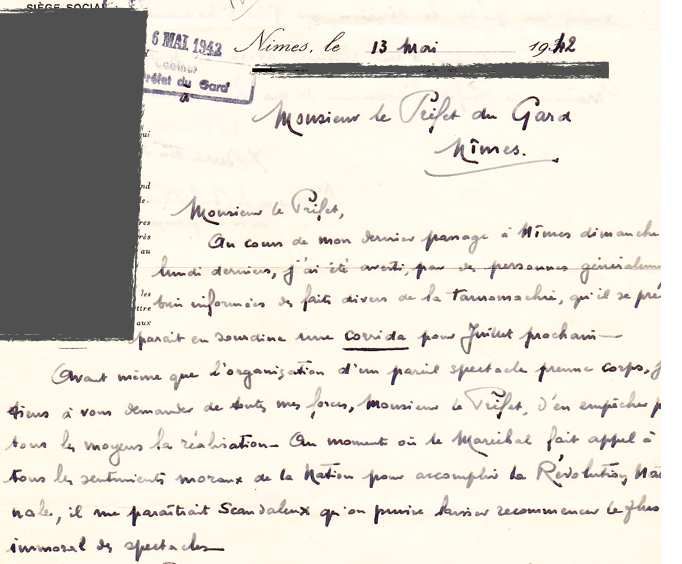 SIÈGE SOCIAL
6 MAI 1942
Cabinet
Préfet du Gard
Nîmes, le 13 Mai 1942
Monsieur le Préfet du Gard
Nîmes.
Monsieur le Préfet,
Au cours de mon dernier passage à Nîmes dimanche
lundi derniers, j'ai été averti, par des personnes généralement
bien informées des faits divers de la Tauromachie, qu'il se pré
parait en sourdine une corrida pour Juillet prochain
Avant même que l'organisation d'un pareil spectacle prenne corps, j
tiens à vous demander de toutes mes forces, Monsieur le Préfet, d'en empêcher p
tous les moyens la réalisation. Au moment où le Maréchal fait appel à
tous les sentiments moraux de la Nation pour accomplir la Révolution Na
nale, il me paraîtrait Scandaleux qu'on puisse laisser recommencer le plus
immoral des spectacles
nd
le
res
rès
au
les
ttre
aux